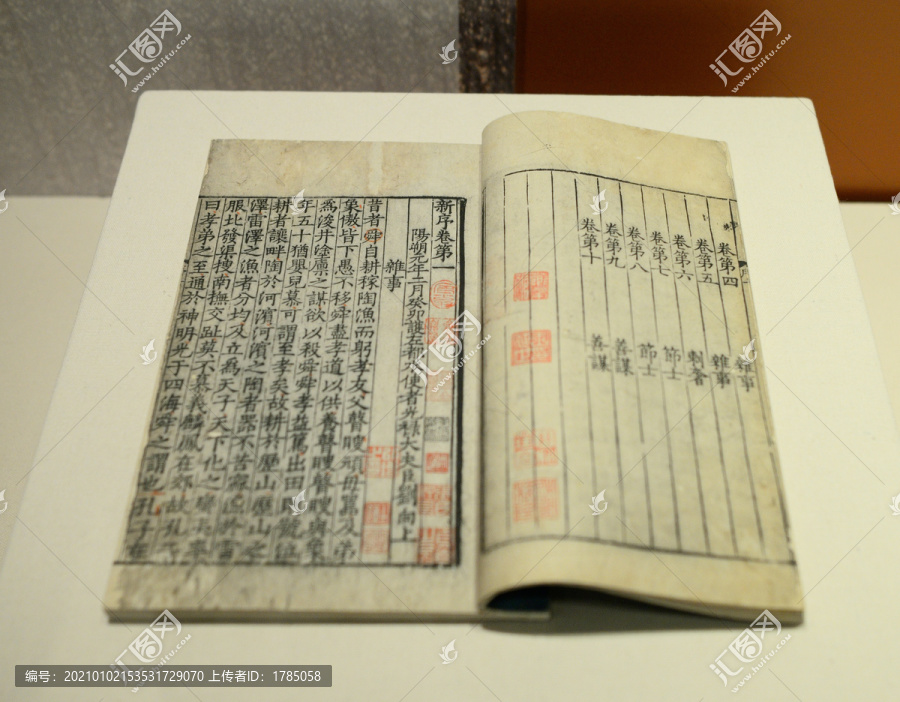 卷第四 雜事
卷第五 雜事
卷第六 刺奢
卷第七 節士
卷第八 節士
卷第九 善謀
卷第十 善謀
新序卷第一
陽朔元年二月癸卯護左都水使者光祿大夫臣劉向上
雜事
昔者舜自耕稼陶漁而躬孝友父瞽瞍頑母嚚及弟
象傲皆下愚不移舜盡孝道以供養瞽瞍瞽瞍與象
為浚井塗廩之謀欲以殺舜舜孝益篤出田則號泣
年五十猶嬰兒慕可謂至孝矣故耕於歷山歷山之
耕者讓畔陶於河濱河濱之陶者器不苦窳漁於雷
澤雷澤之漁者分均及立為天子天下化之蠻夷率
服北發渠搜南撫交阯莫不慕義麟鳳在郊故孔子
曰孝弟之至通於神明光于四海舜之謂也孔子在
汇图网
www.huitu.com
编号: 20210102153531729070 上传者ID: 1785058